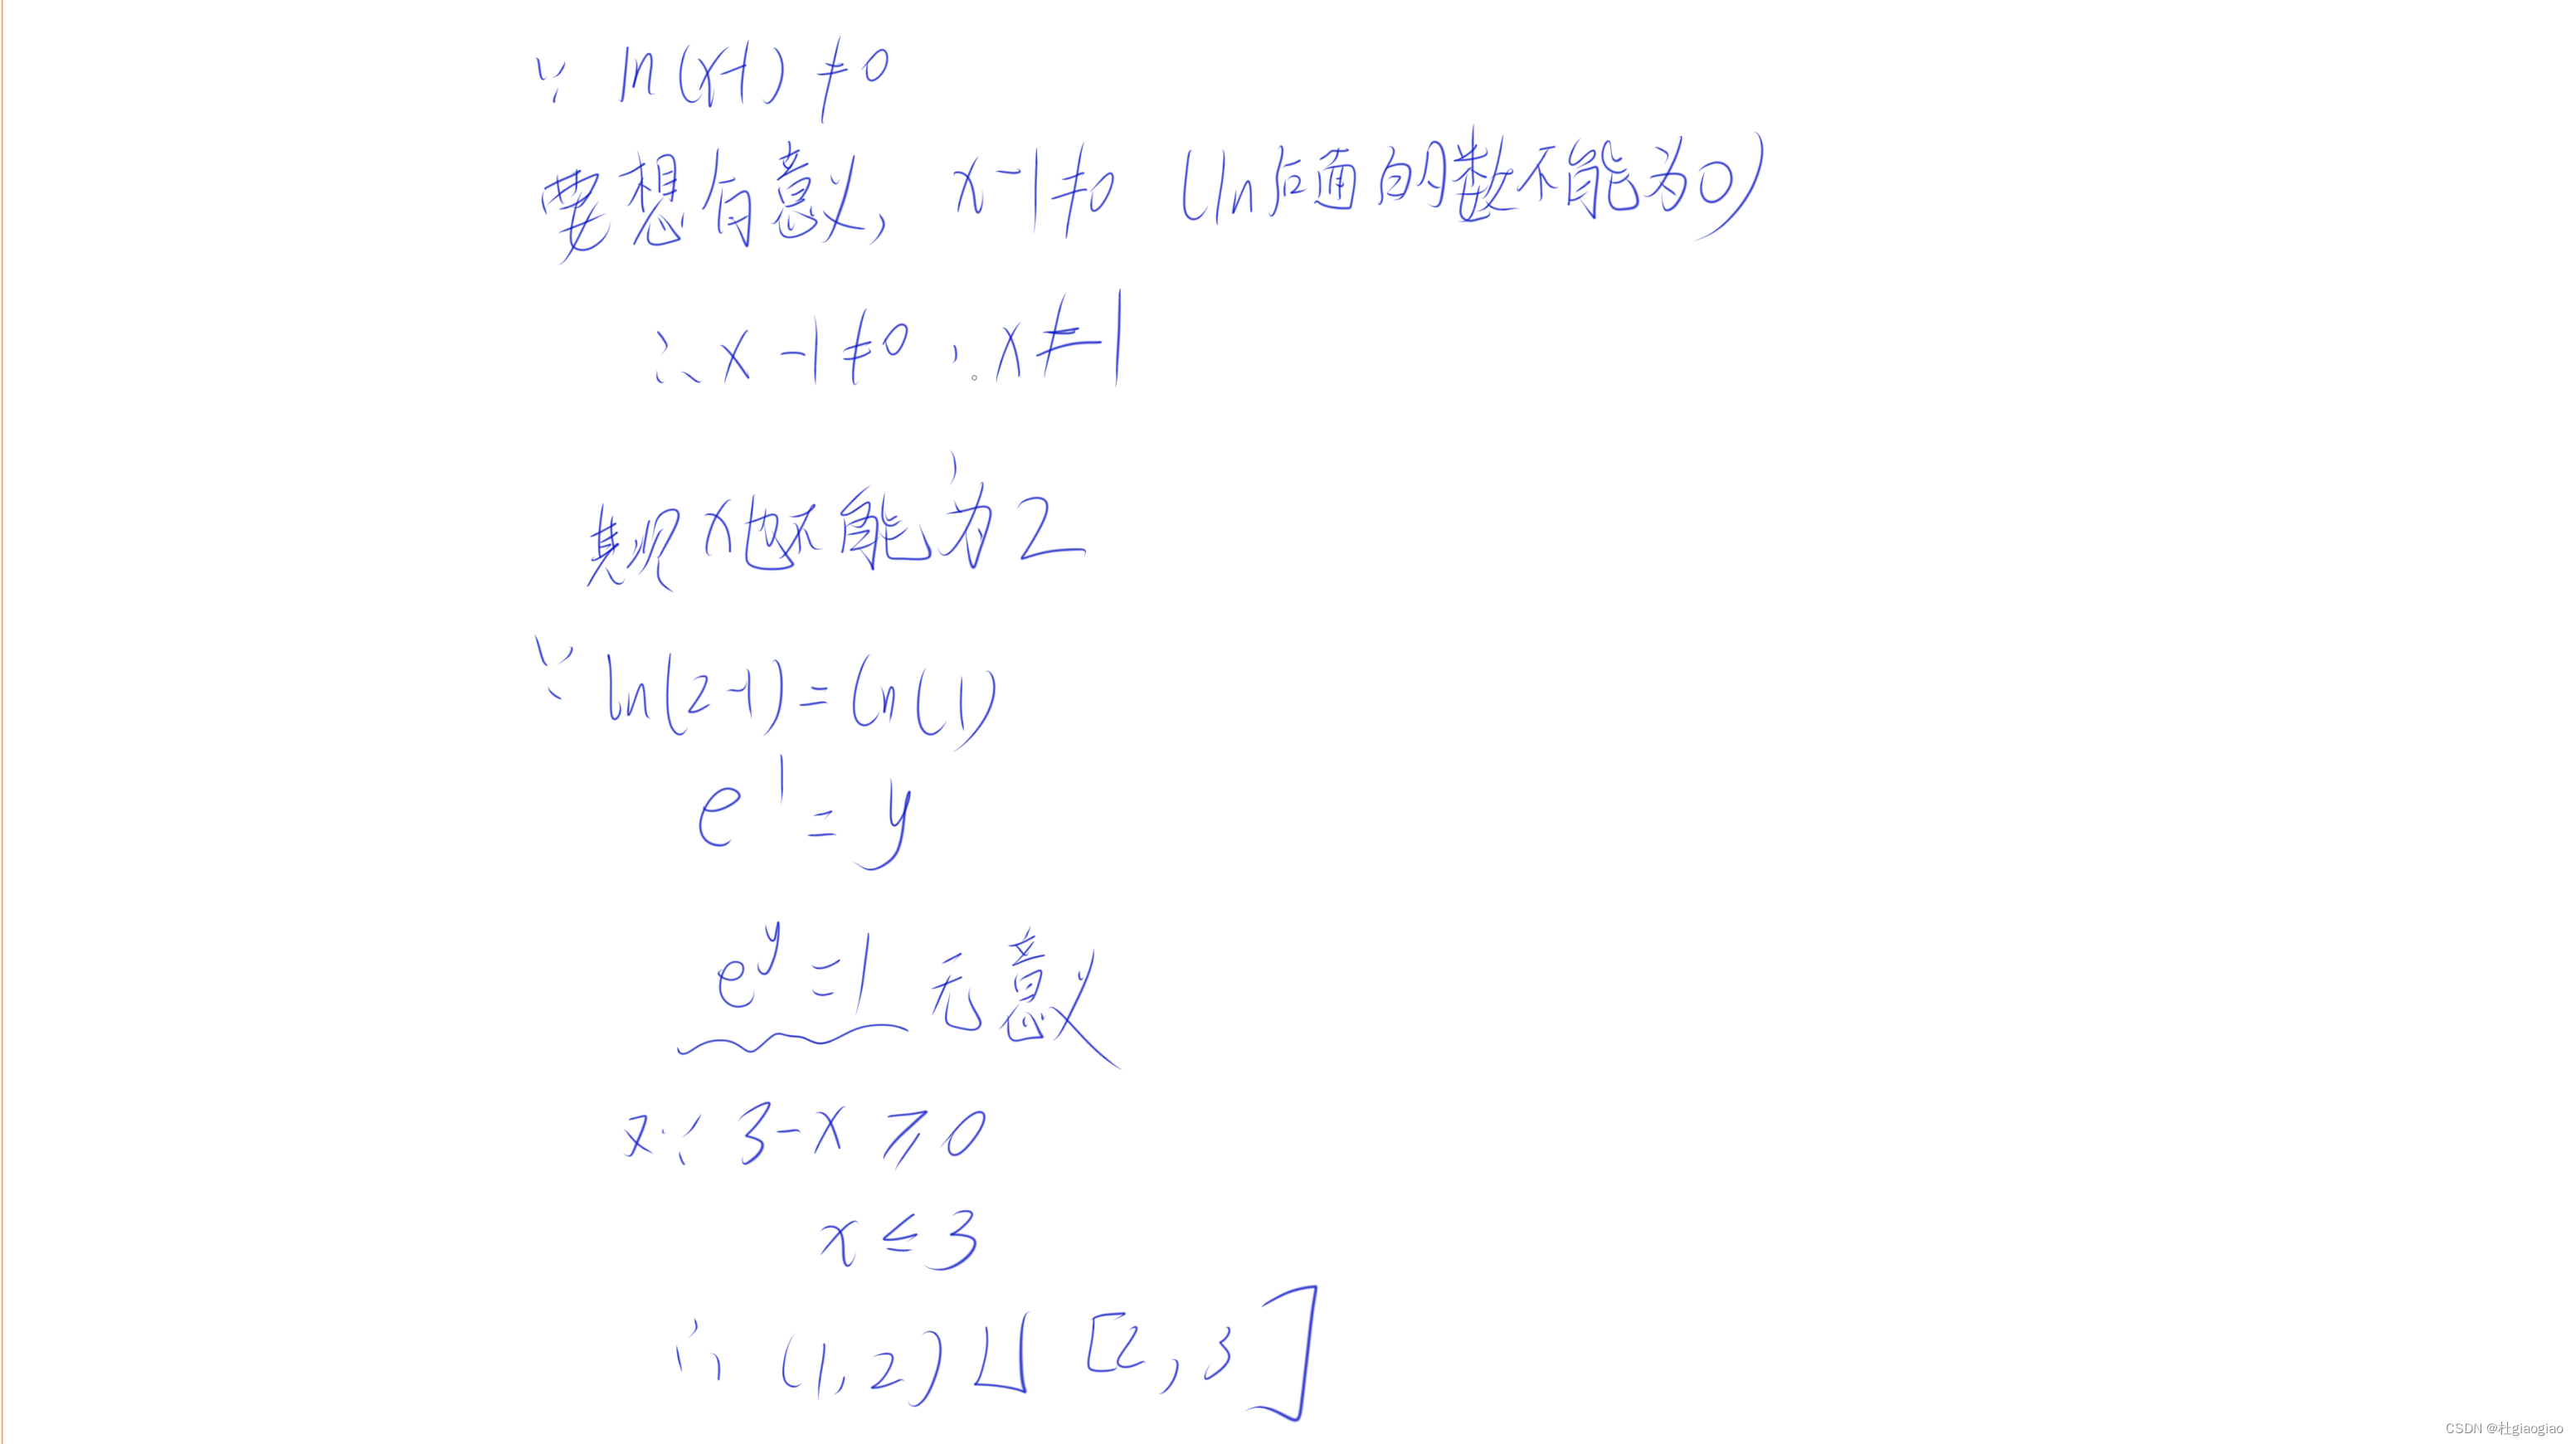 ∵ ln(x-1) ≠0
要想有意义, x-1≠0 (ln后面的数不能为0)
∴x-1≠0 ∴x≠-1
x也不能为2
∵ ln(2-1)=ln(1)
e¹=y
eʸ=1 无意义
又∵ 3-x ≥0
x≤3
∴ (1,2)∪[2,3]
CSDN @杜giaogiao